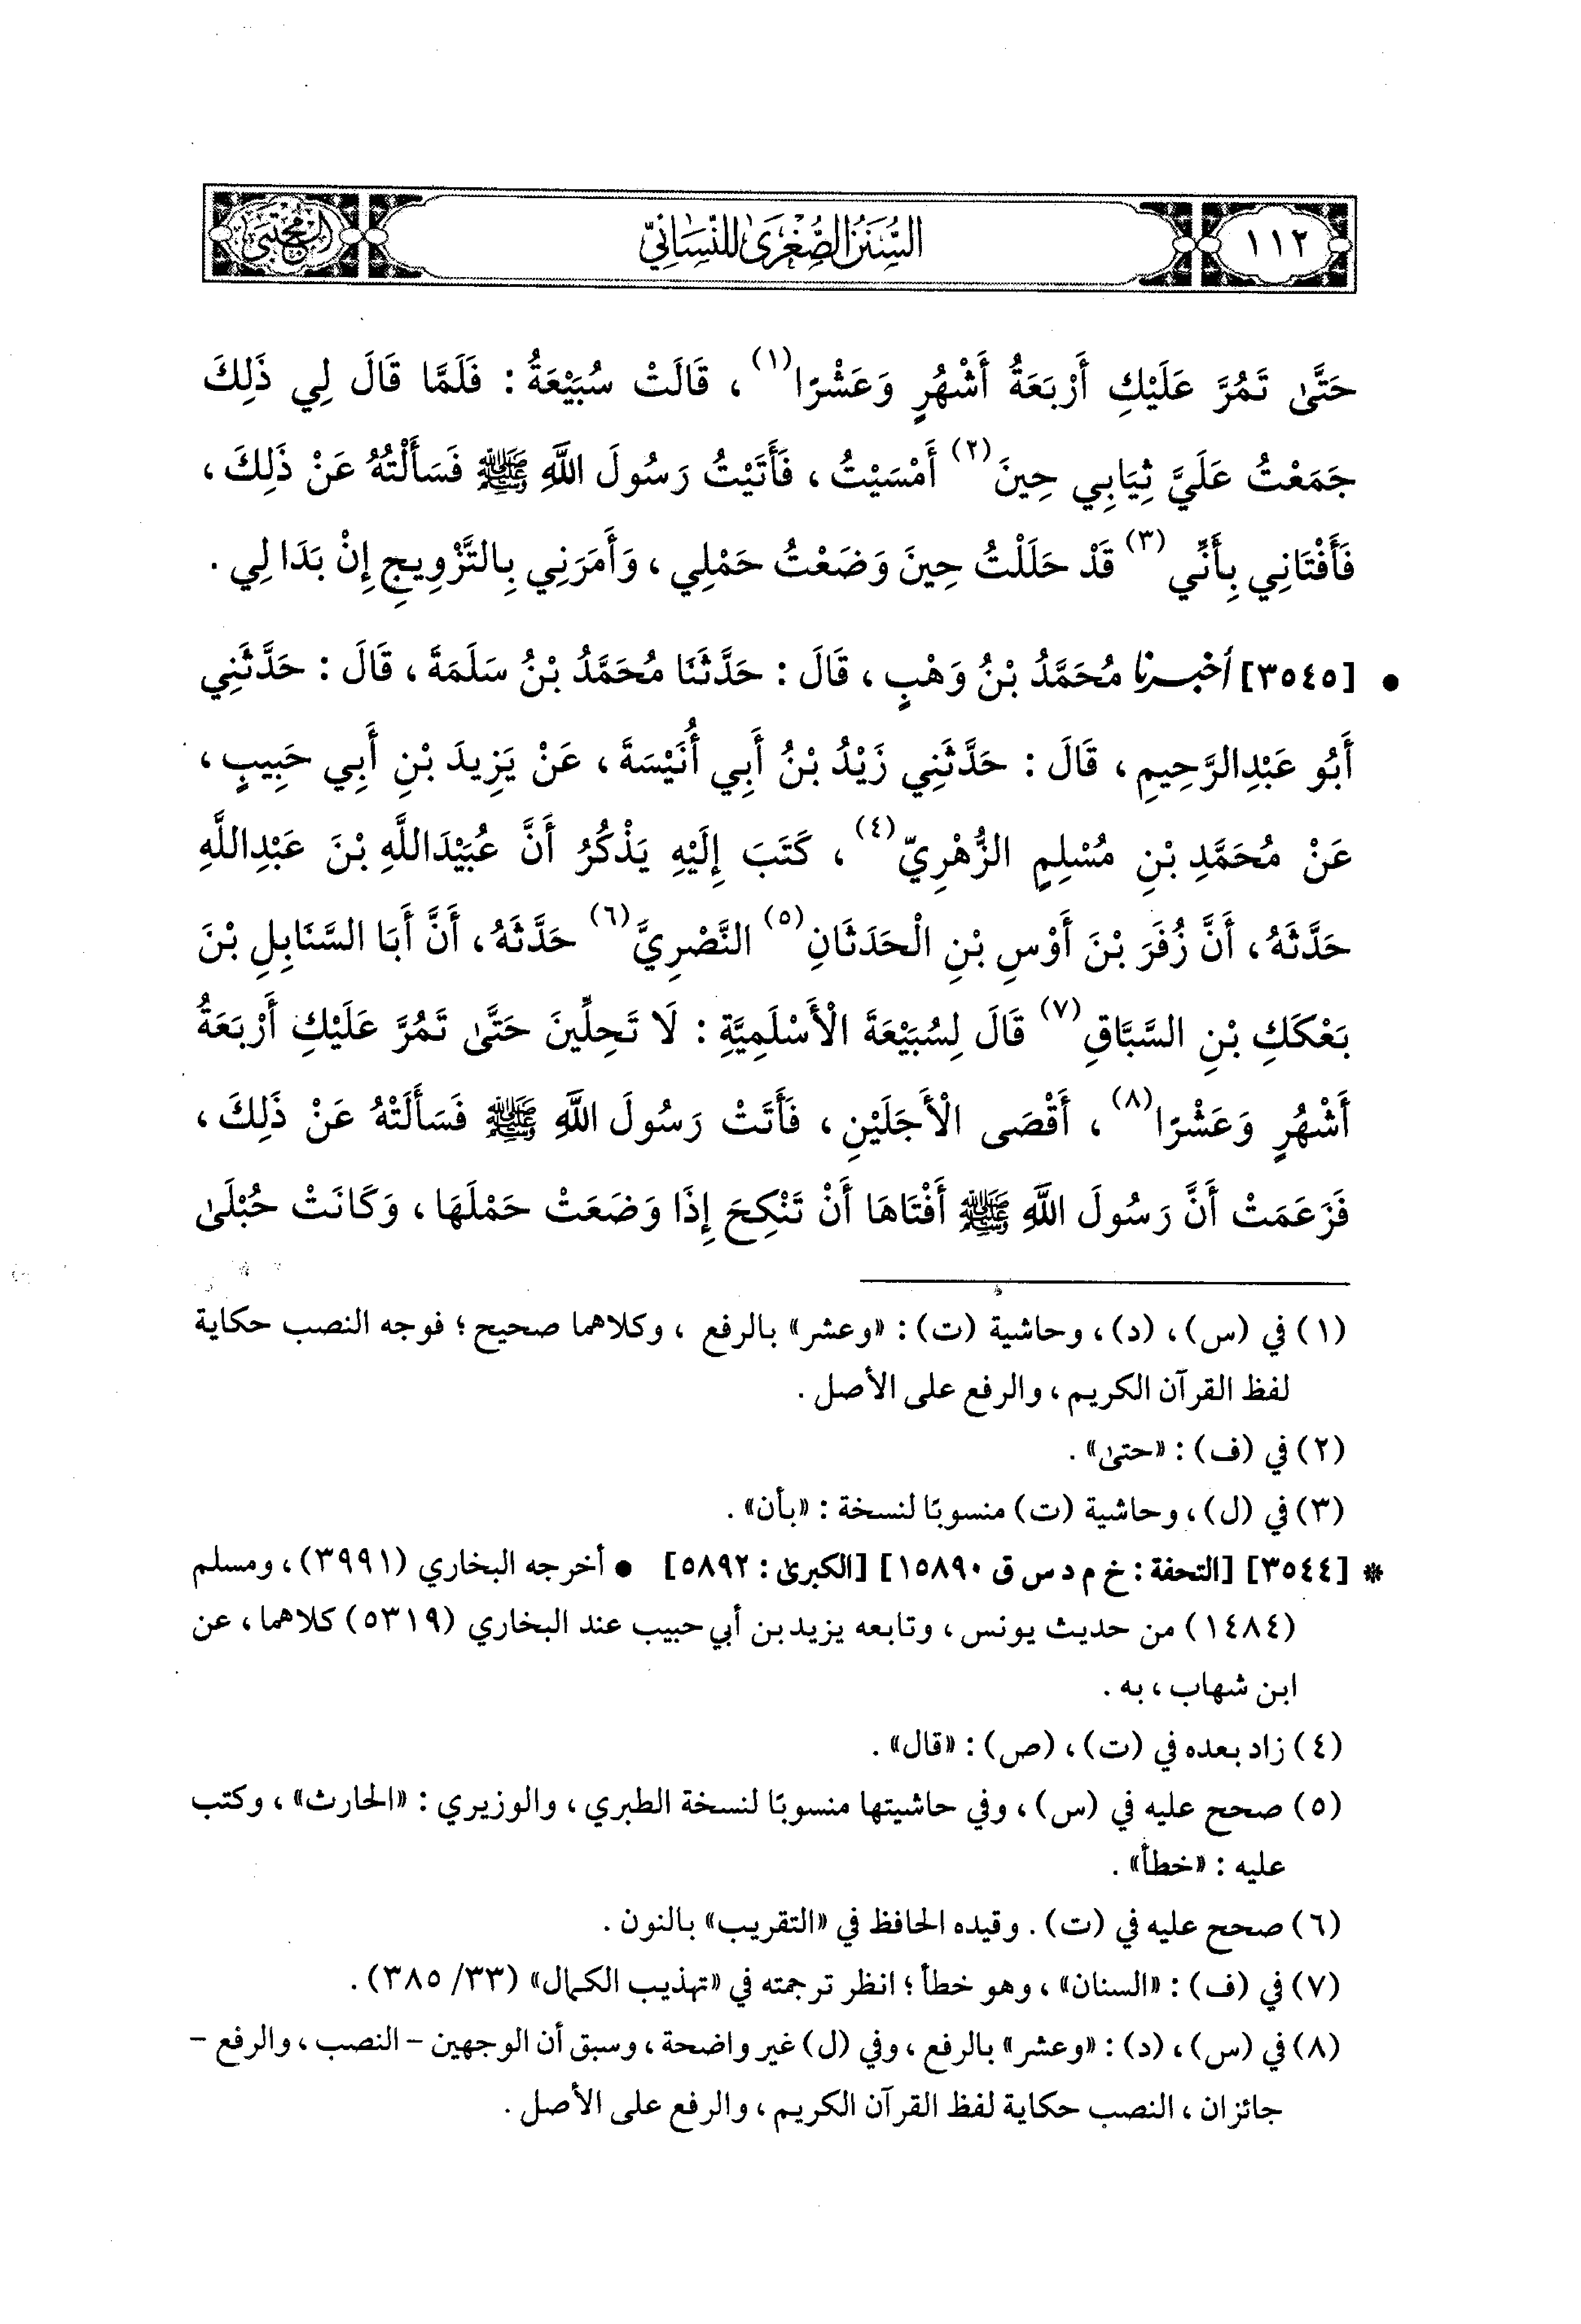 ١١٢
السُّنَنُ الصُّغْرَىٰ لِلنَّسَائِيِّ
المجتبى
حَتَّىٰ تَمُرَّ عَلَيْكِ أَرْبَعَةُ أَشْهُرٍ وَعَشْرًا(١)، قَالَتْ سُبَيْعَةُ : فَلَمَّا قَالَ لِي ذَلِكَ
جَمَعْتُ عَلَيَّ ثِيَابِي حِينَ(٢) أَمْسَيْتُ، فَأَتَيْتُ رَسُولَ اللَّهِ ﷺ فَسَأَلْتُهُ عَنْ ذَلِكَ،
فَأَفْتَانِي بِأَنِّي(٣) قَدْ حَلَلْتُ حِينَ وَضَعْتُ حَمْلِي، وَأَمَرَنِي بِالتَّزْوِيجِ إِنْ بَدَا لِي .
• [٣٥٤٥] أخبرنا مُحَمَّدُ بْنُ وَهْبٍ، قَالَ : حَدَّثَنَا مُحَمَّدُ بْنُ سَلَمَةَ، قَالَ : حَدَّثَنِي
أَبُو عَبْدِالرَّحِيمِ، قَالَ : حَدَّثَنِي زَيْدُ بْنُ أَبِي أُنَيْسَةَ، عَنْ يَزِيدَ بْنِ أَبِي حَبِيبٍ،
عَنْ مُحَمَّدِ بْنِ مُسْلِمٍ الزُّهْرِيِّ(٤)، كَتَبَ إِلَيْهِ يَذْكُرُ أَنَّ عُبَيْدَاللَّهِ بْنَ عَبْدِاللَّهِ
حَدَّثَهُ، أَنَّ زُفَرَ بْنَ أَوْسِ بْنِ الْحَدَثَانِ(٥) النَّصْرِيَّ(٦) حَدَّثَهُ، أَنَّ أَبَا السَّنَابِلِ بْنَ
بَعْكَكِ بْنِ السَّبَّاقِ(٧) قَالَ لِسُبَيْعَةَ الْأَسْلَمِيَّةِ : لَا تَحِلِّينَ حَتَّىٰ تَمُرَّ عَلَيْكِ أَرْبَعَةُ
أَشْهُرٍ وَعَشْرًا(٨)، أَقْصَى الْأَجَلَيْنِ، فَأَتَتْ رَسُولَ اللَّهِ ﷺ فَسَأَلَتْهُ عَنْ ذَلِكَ،
فَزَعَمَتْ أَنَّ رَسُولَ اللَّهِ ﷺ أَفْتَاهَا أَنْ تَنْكِحَ إِذَا وَضَعَتْ حَمْلَهَا، وَكَانَتْ حُبْلَىٰ
(١) في (س)، (د)، وحاشية (ت) : «وعشر» بالرفع ، وكلاهما صحيح ؛ فوجه النصب حكاية
لفظ القرآن الكريم، والرفع على الأصل .
(٢) في (ف) : «حتىٰ» .
(٣) في (ل)، وحاشية (ت) منسوبًا لنسخة : «بأن» .
* [٣٥٤٤] [التحفة : خ م د س ق ١٥٨٩٠] [الكبرىٰ : ٥٨٩٢] • أخرجه البخاري (٣٩٩١)، ومسلم
(١٤٨٤) من حديث يونس، وتابعه يزيد بن أبي حبيب عند البخاري (٥٣١٩) كلاهما، عن
ابن شهاب، به .
(٤) زاد بعده في (ت)، (ص) : «قال» .
(٥) صحح عليه في (س)، وفي حاشيتها منسوبًا لنسخة الطبري، والوزيري : «الحارث»، وكتب
عليه : «خطأ» .
(٦) صحح عليه في (ت) . وقيده الحافظ في «التقريب» بالنون .
(٧) في (ف) : «السنان»، وهو خطأ ؛ انظر ترجمته في «تهذيب الكمال» (٣٣/ ٣٨٥) .
(٨) في (س)، (د) : «وعشر» بالرفع، وفي (ل) غير واضحة، وسبق أن الوجهين - النصب، والرفع -
جائزان، النصب حكاية لفظ القرآن الكريم، والرفع على الأصل .